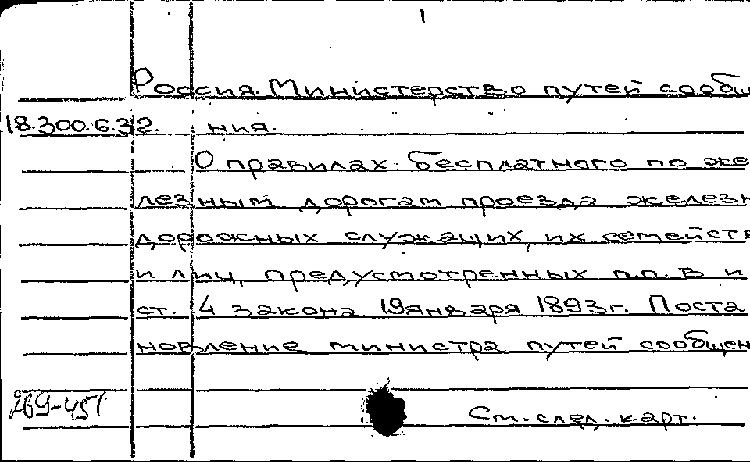 1
Россия. Министерство путей сообще
18.300.6.32. ния.
О правилах бесплатного по же
лезным дорогам проезда железн
дорожных служащих, их семейств
и лиц, предусмотренных п.п. В и
ст. 4 закона 19 января 1893 г. Поста
новление министра путей сообщен
269-451
См. след. карт.